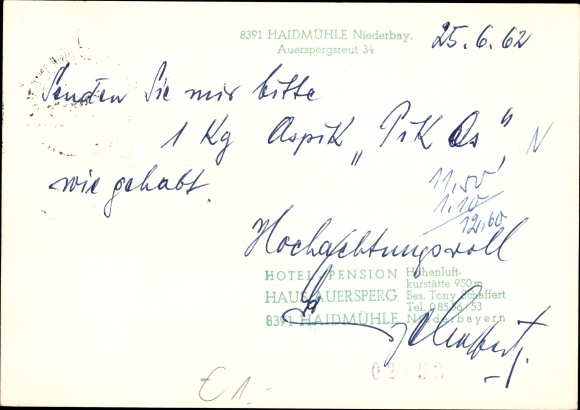 8391 HAIDMÜHLE Niederbay.
Auerspergsreut 34
25.6.62
Senden Sie mir bitte
1 Kg Aspik „Pik As“
N
wie gehabt.
11,50
1.10
12,60
Hochachtungsvoll
HOTEL-PENSION
HAUS AUERSPERG
8391 HAIDMÜHLE Niederbayern
Höhenluft-
kurstätte 950 m
Bes. Tony Schaffert
Tel. 08556/53
€ 1.-